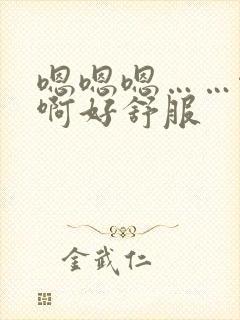 嗯嗯嗯……
啊好舒服
金武仁